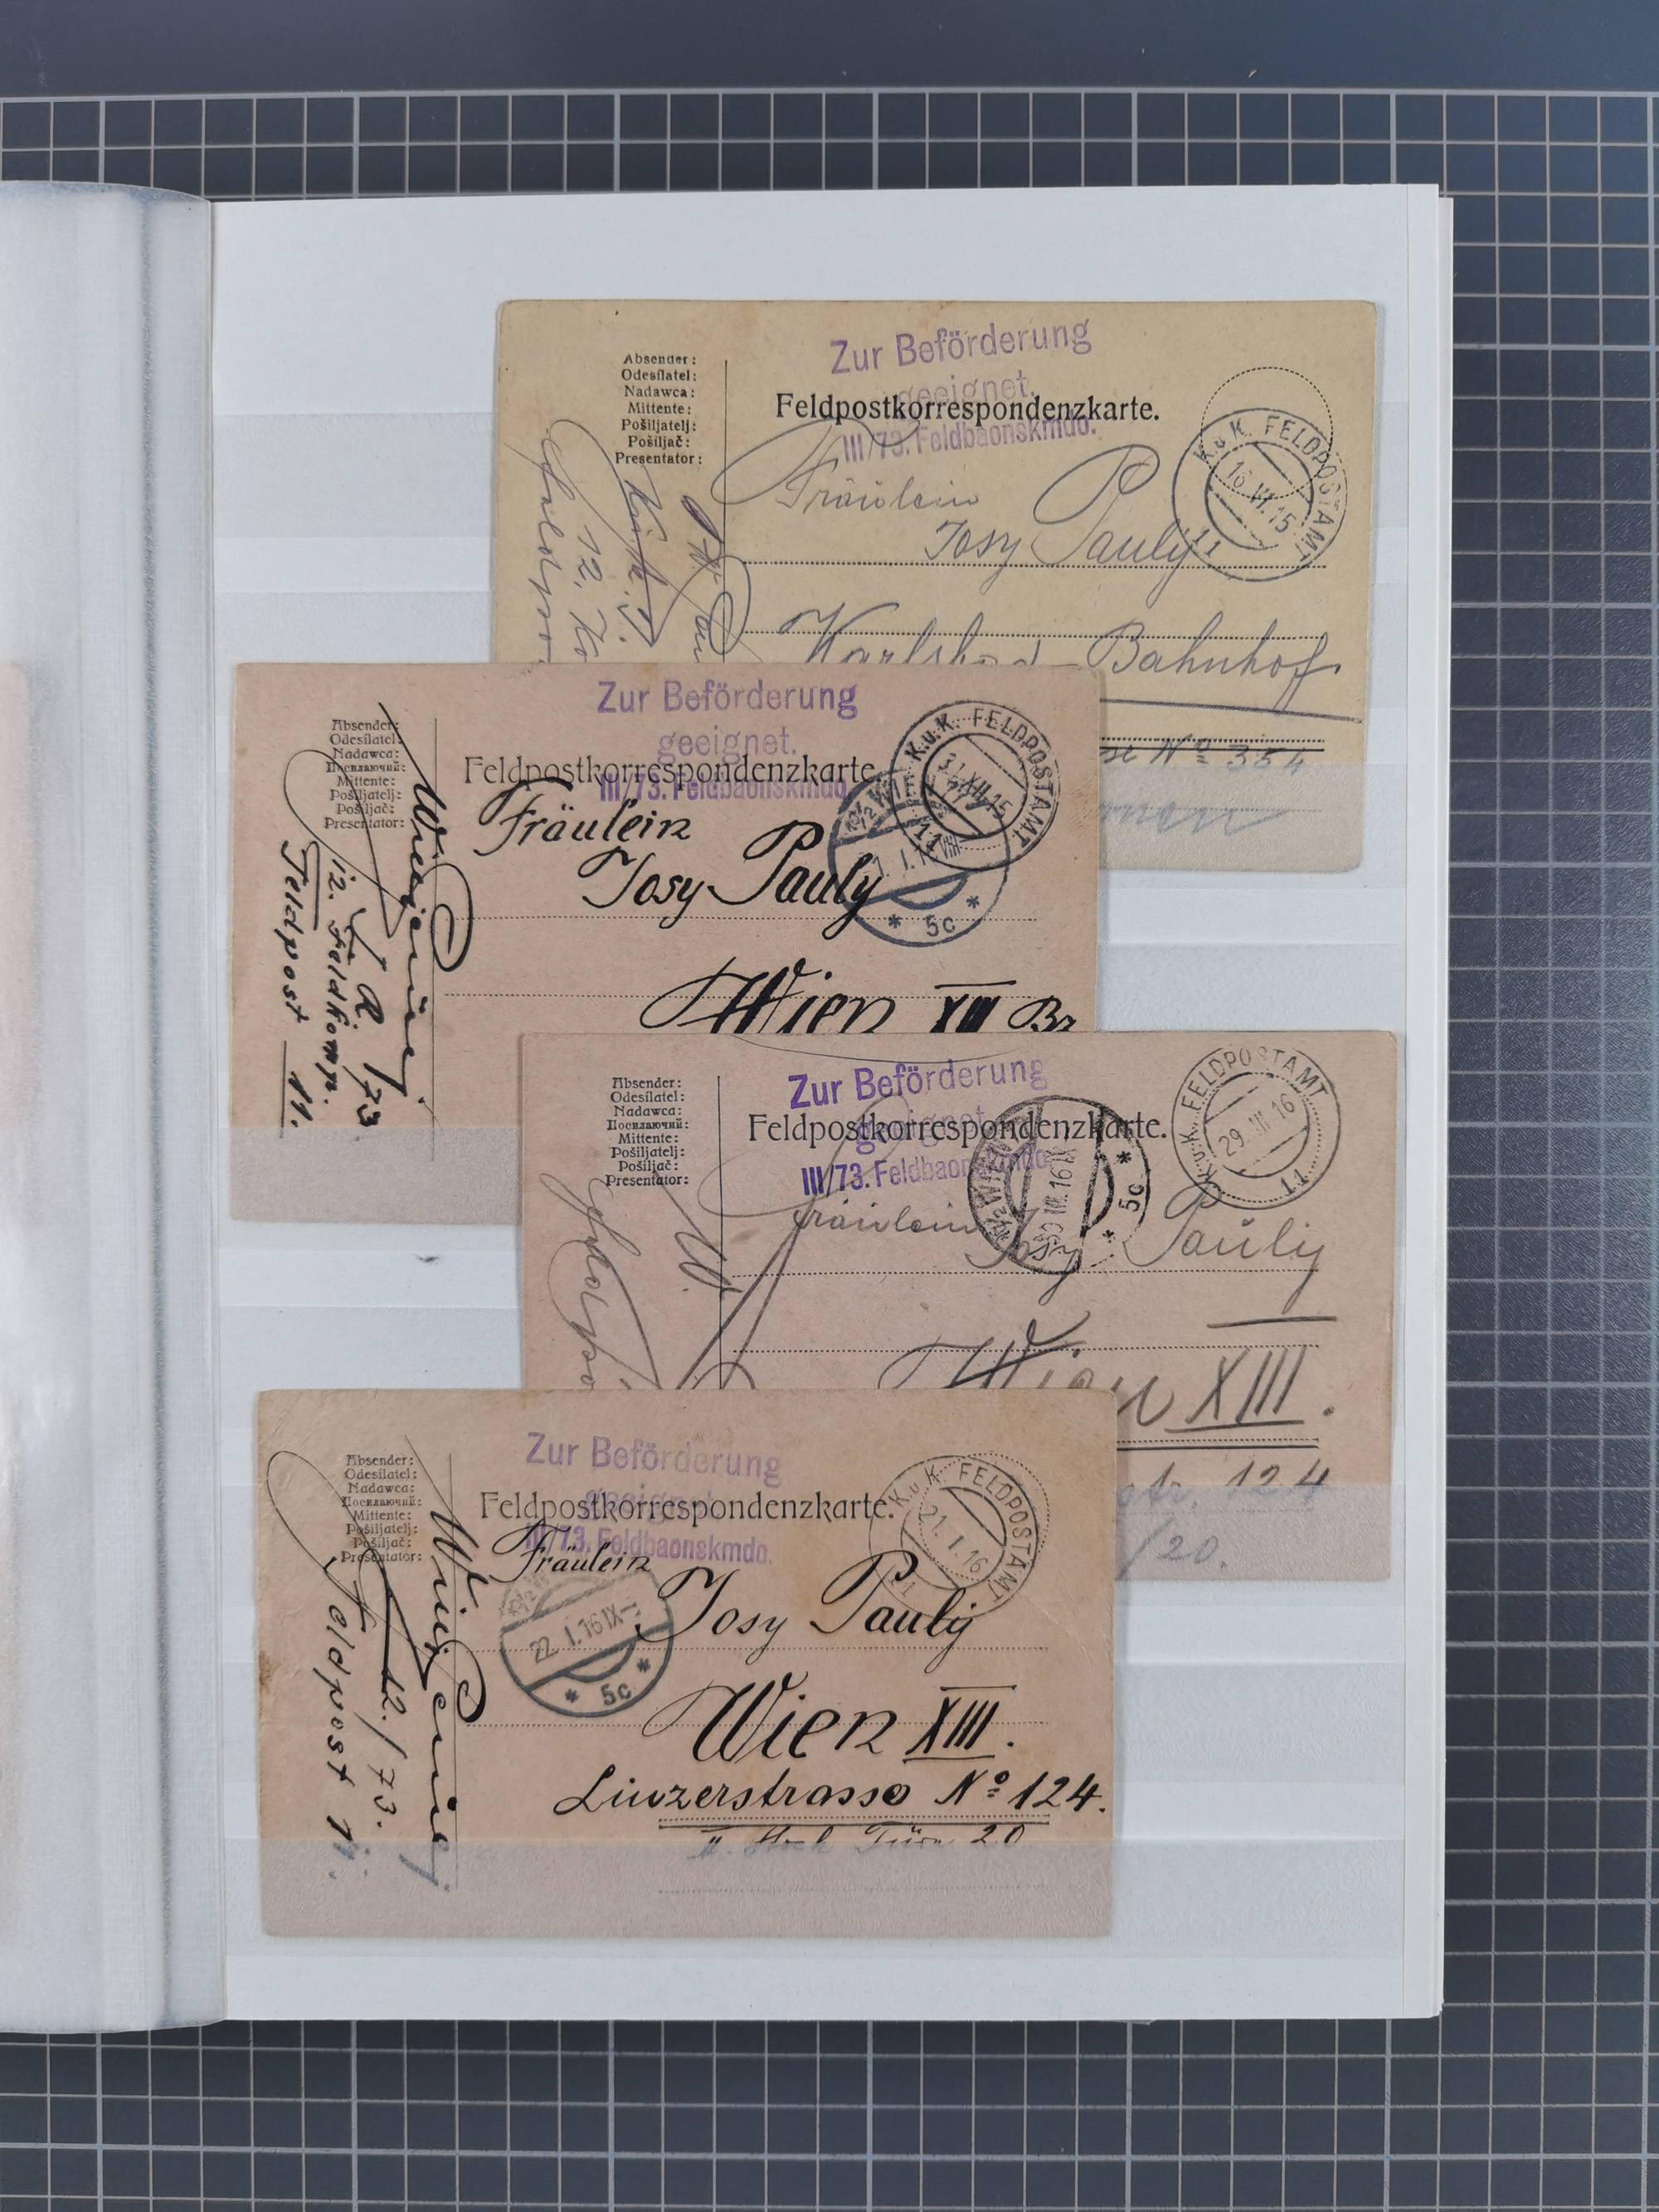 Zur Beförderung
geeignet.
III/73. Feldbaonskmdo.
Absender:
Odesílatel:
Nadawca:
Mittente:
Pošiljatelj:
Pošiljač:
Presentator:
Feldpostkorrespondenzkarte.
K.u.K. FELDPOSTAMT
16.VI.15
11
Fräulein
Josy Pauly
Karlsbad-Bahnhof
No 354
12. Ko
Feldpo
Zur Beförderung
geeignet.
III/73. Feldbaonskmdo.
Absender:
Odesílatel:
Nadawca:
Посилаючий:
Mittente:
Pošiljatelj:
Pošiljač:
Presentator:
Feldpostkorrespondenzkarte.
K.u.K. FELDPOSTAMT
31.XII.15
11
* 5c *
Fräulein
Josy Pauly
Wien XIII Br
J R 73
12. Feldkomp.
Feldpost 11.
Zur Beförderung
geeignet.
III/73. Feldbaonskmdo.
Absender:
Odesílatel:
Nadawca:
Посилаючий:
Mittente:
Pošiljatelj:
Pošiljač:
Presentator:
Feldpostkorrespondenzkarte.
K.u.K. FELDPOSTAMT
29.III.16
11
30.III.16 IX
* 5c *
Fräulein Josy Pauly
Wien XIII.
str. 124
/20.
Feldpo
Zur Beförderung
geeignet.
III/73. Feldbaonskmdo.
Absender:
Odesílatel:
Nadawca:
Посилаючий:
Mittente:
Pošiljatelj:
Pošiljač:
Presentator:
Feldpostkorrespondenzkarte.
K.u.K. FELDPOSTAMT
21.I.16
11
22.I.16 IX
* 5c *
Fräulein
Josy Pauly
Wien XIII.
Linzerstrasse No 124.
II. Stock Türe 20
12./73.
Feldpost 11.